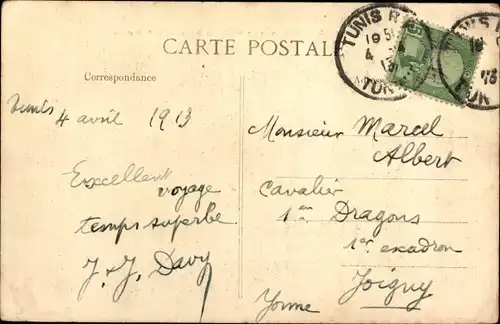 CARTE POSTALE
Correspondance
Tunis 4 avril 1913
Excellent
voyage
temps superbe
J. & J. Davy
Monsieur Marcel
Albert
Cavalier
1er Dragons
1er escadron
Joigny
Yonne
TUNIS R
19 5
4 4
13
TUN
5